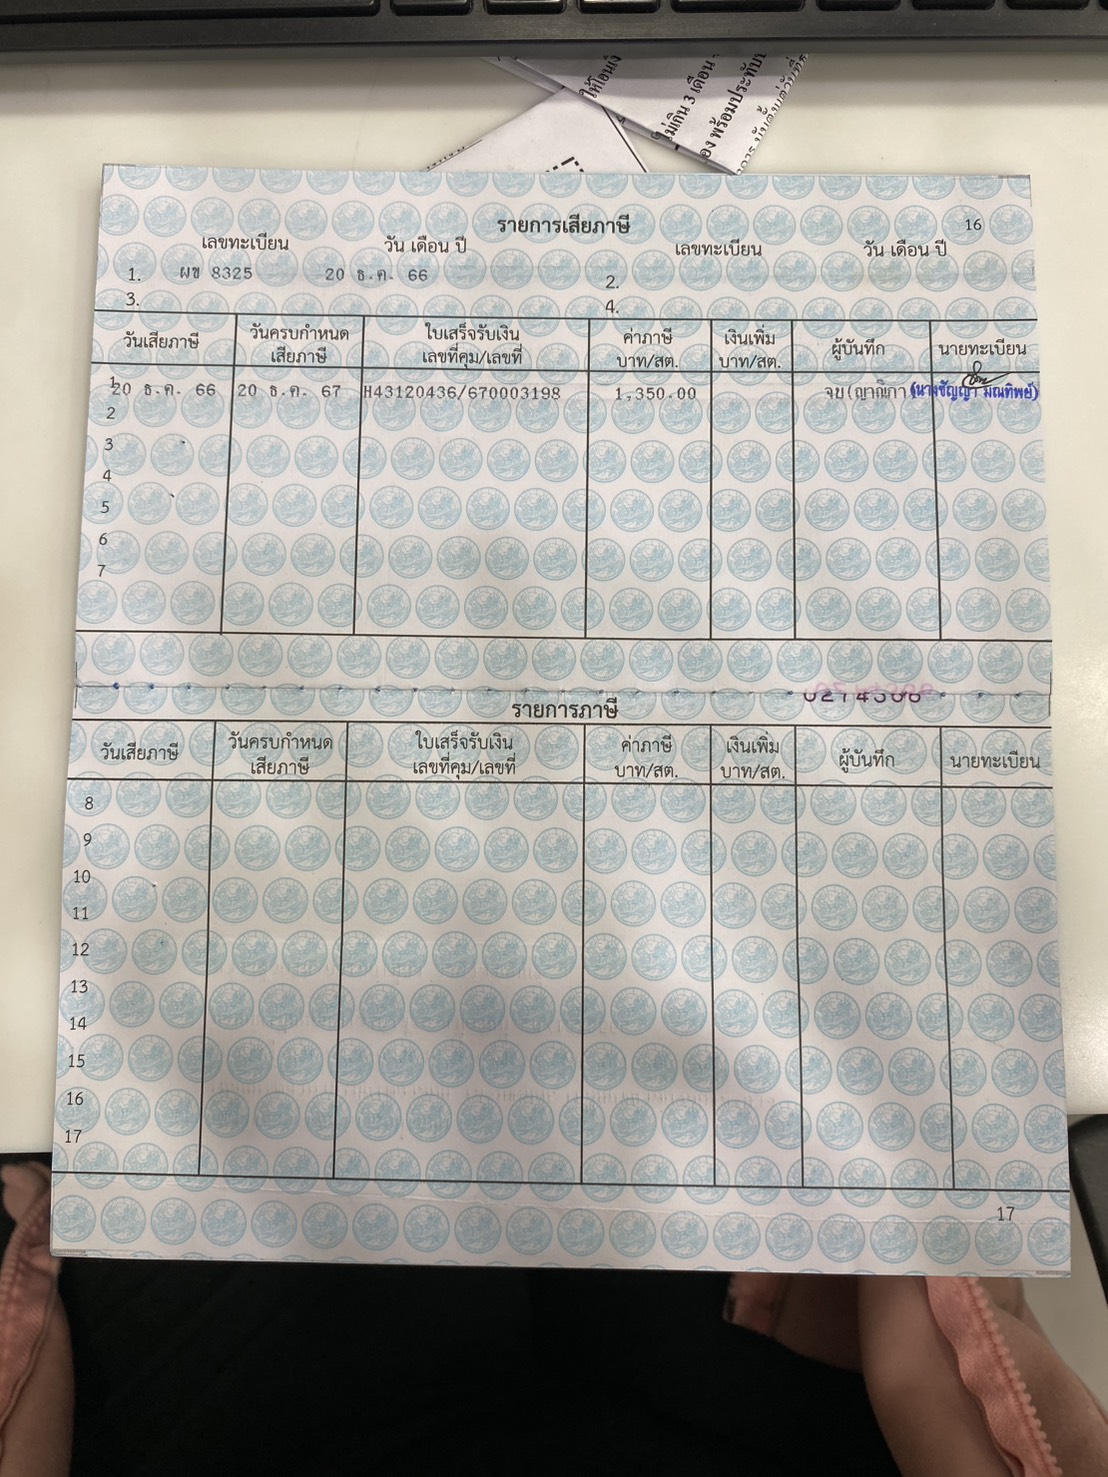 ให้โอนเงิ
ไม่เกิน 3 เดือน
อง พร้อมประทับ
รายการเสียภาษี
16
เลขทะเบียน วัน เดือน ปี เลขทะเบียน วัน เดือน ปี
1. ผข 8325 20 ธ.ค. 66 2.
3. 4.
วันเสียภาษี วันครบกำหนด เสียภาษี ใบเสร็จรับเงิน เลขที่คุม/เลขที่ ค่าภาษี บาท/สต. เงินเพิ่ม บาท/สต. ผู้บันทึก นายทะเบียน
1 20 ธ.ค. 66 20 ธ.ค. 67 H43120436/670003198 1,350.00 จบ(ญาณิภา (นางชัญญา มณฑิพย์)
2
3
4
5
6
7
รายการภาษี
วันเสียภาษี วันครบกำหนด เสียภาษี ใบเสร็จรับเงิน เลขที่คุม/เลขที่ ค่าภาษี บาท/สต. เงินเพิ่ม บาท/สต. ผู้บันทึก นายทะเบียน
8
9
10
11
12
13
14
15
16
17
17